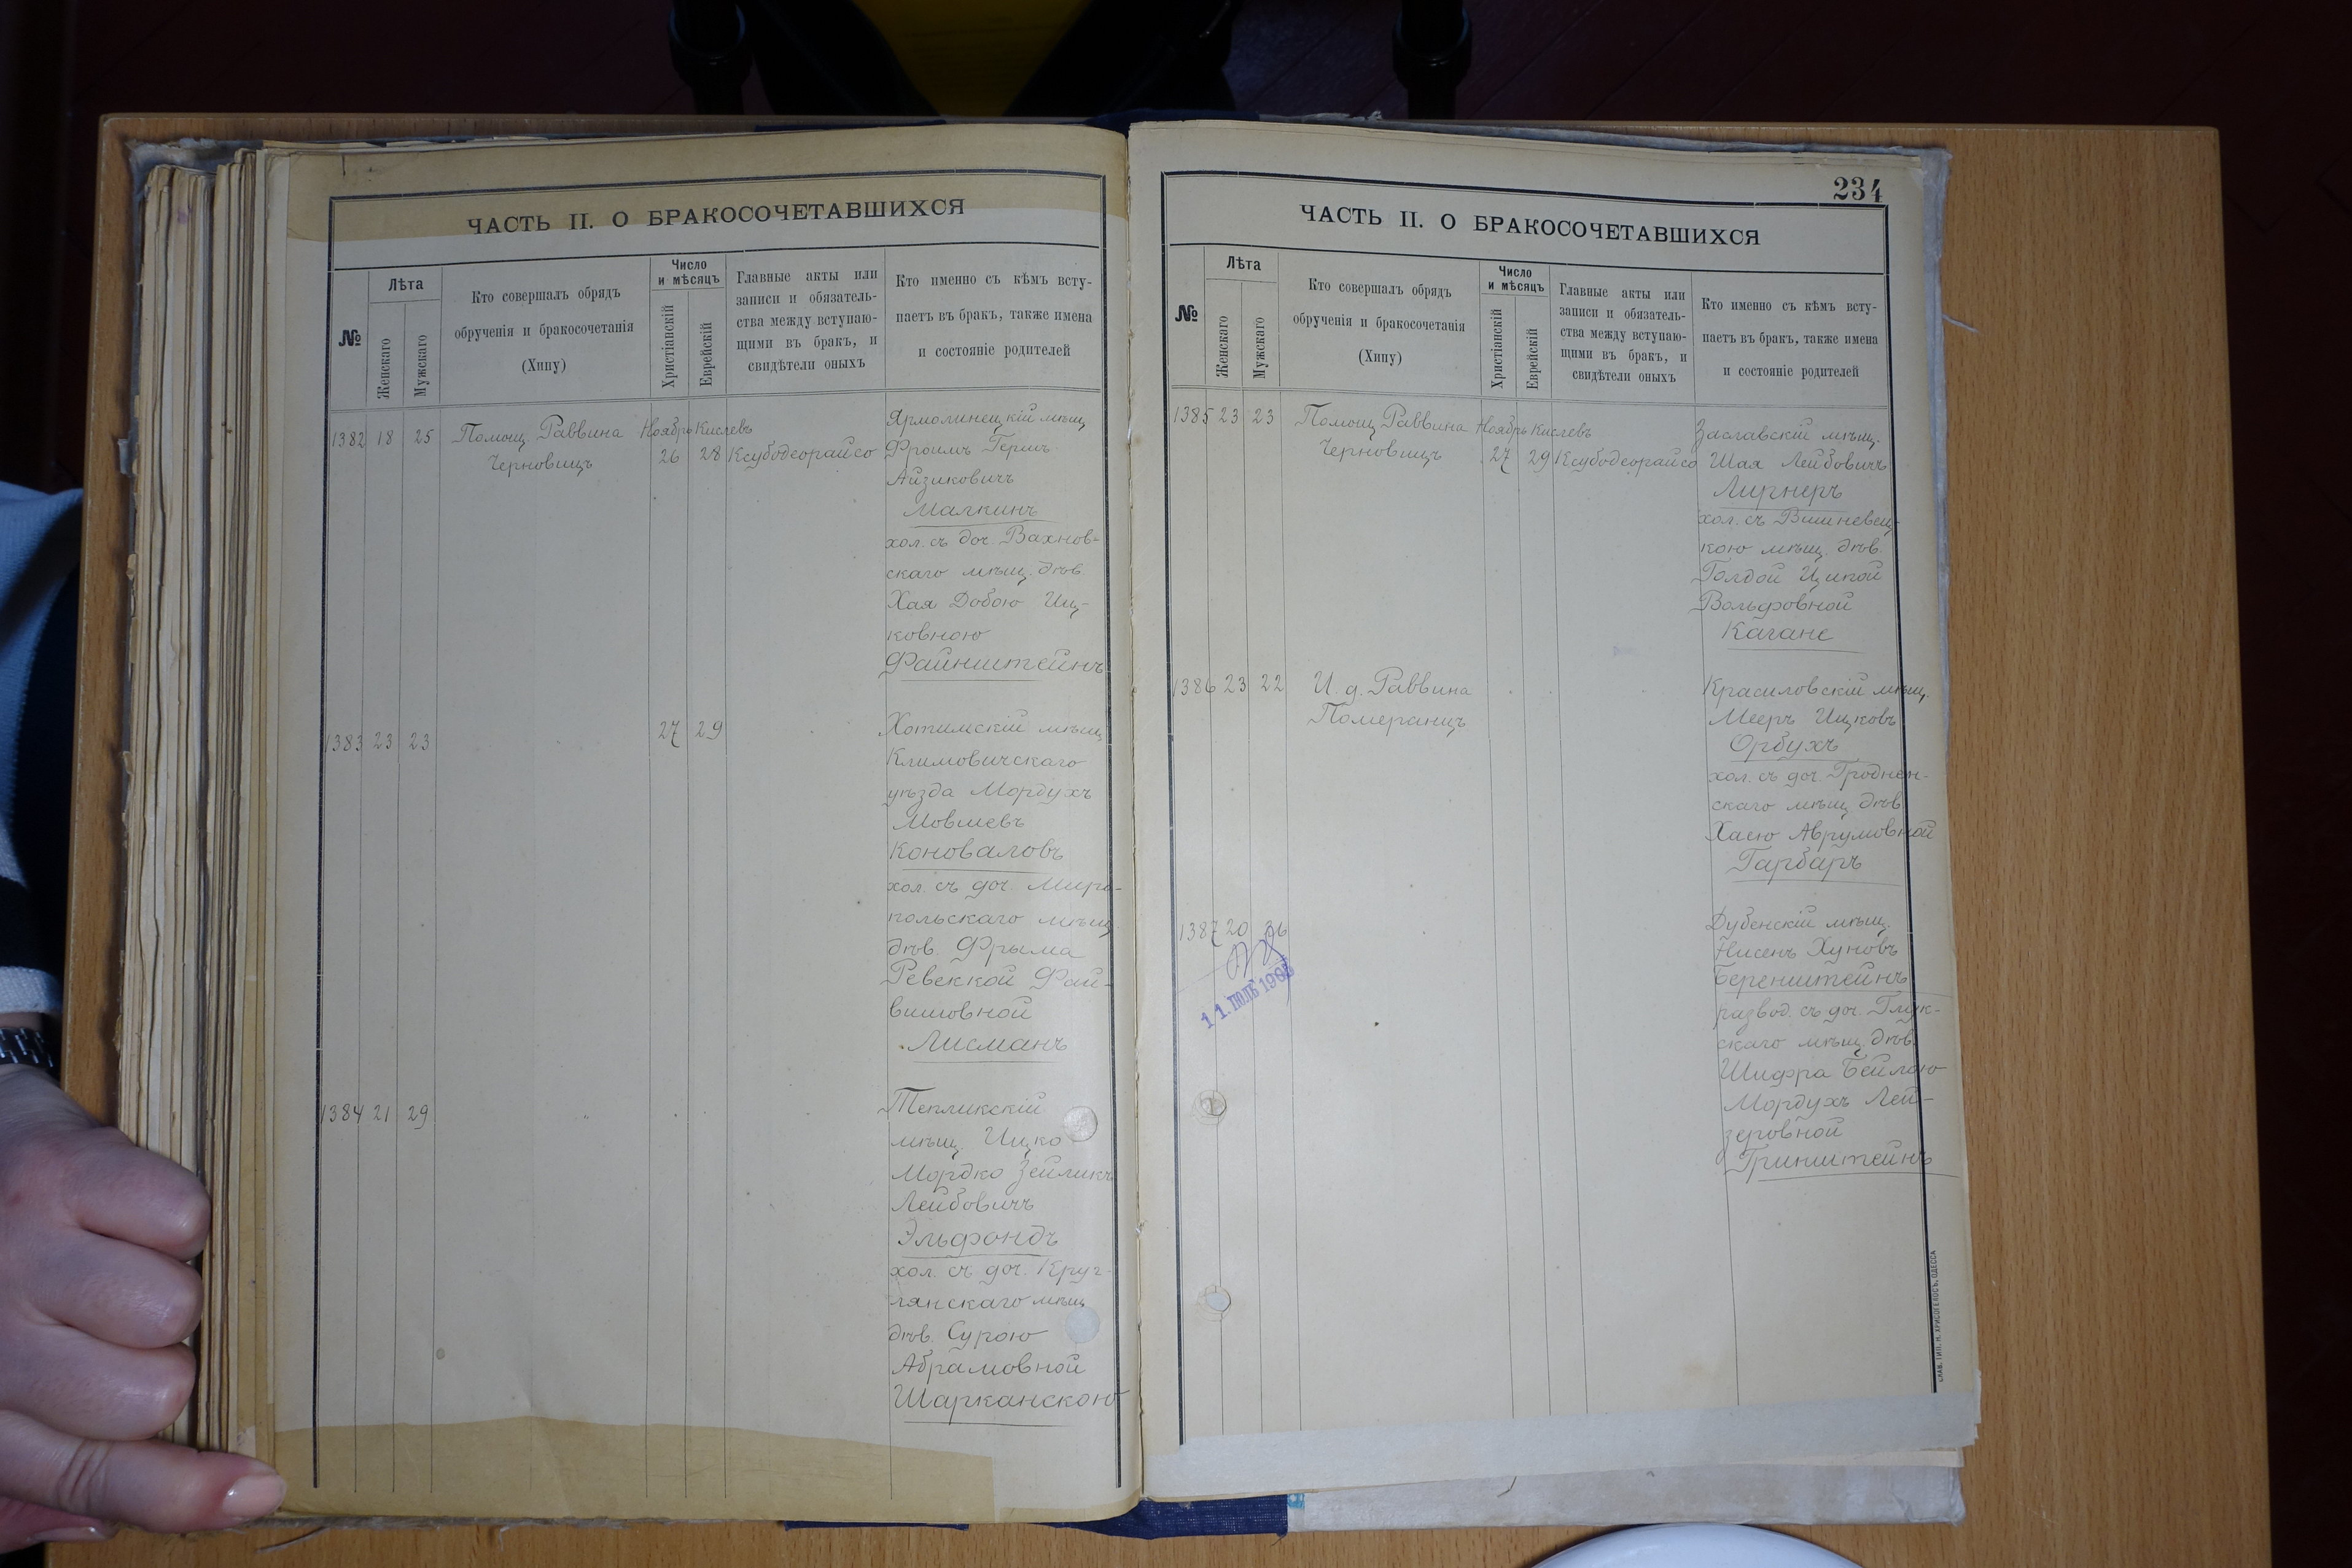 ЧАСТЬ II. О БРАКОСОЧЕТАВШИХСЯ
№
Лѣта
Женскаго
Мужскаго
Кто совершалъ обрядъ
обрученія и бракосочетанія
(Хипу)
Число
и мѣсяцъ
Христіанскій
Еврейскій
Главные акты или
записи и обязатель-
ства между вступаю-
щими въ бракъ, и
свидѣтели оныхъ
Кто именно съ кѣмъ всту-
паетъ въ бракъ, также имена
и состояніе родителей
1382 18 25 Помощ. Раввина Ноябрь Кислевъ
Черновицъ 26 28 Ксубодеорайсо
Ярмолинецкій мѣщ.
Фроимъ Гершъ
Айзиковичъ
Малкинъ
хол. съ доч. Вахнов-
скаго мѣщ. дѣв.
Хая Добою Иц-
ковною
Файнштейнъ
1383 23 23 27 29
Хотимскій мѣщ.
Климовичскаго
уѣзда Мордухъ
Мовшевъ
Коноваловъ
хол. съ доч. Миро-
польскаго мѣщ.
дѣв. Фрыма
Ревеккой Фай-
вишовной
Лисманъ
1384 21 29
Тепликскій
мѣщ. Ицко
Мордко Зейликъ
Лейбовичъ
Эльфондъ
хол. съ доч. Круг-
лянскаго мѣщ.
дѣв. Сурою
Абрамовной
Шарканскою
234
ЧАСТЬ II. О БРАКОСОЧЕТАВШИХСЯ
№
Лѣта
Женскаго
Мужскаго
Кто совершалъ обрядъ
обрученія и бракосочетанія
(Хипу)
Число
и мѣсяцъ
Христіанскій
Еврейскій
Главные акты или
записи и обязатель-
ства между вступаю-
щими въ бракъ, и
свидѣтели оныхъ
Кто именно съ кѣмъ всту-
паетъ въ бракъ, также имена
и состояніе родителей
1385 23 23 Помощ. Раввина Ноябрь Кислевъ
Черновицъ 27 29 Ксубодеорайсо
Заславскій мѣщ.
Шая Лейбовичъ
Лирнеръ
хол. съ Вишневец-
кою мѣщ. дѣв.
Голдой Ципой
Вольфовной
Кагане
1386 23 22 И. д. Раввина
Померанцъ
Красиловскій мѣщ.
Мееръ Ицковъ
Орбухъ
хол. съ доч. Гроднен-
скаго мѣщ. дѣв.
Хасю Аврумовной
Гарбаръ
1387 20 26
11. ІЮЛЬ 190
Дубенскій мѣщ.
Нисенъ Хуновъ
Беренштейнъ
развод. съ доч. Глук-
скаго мѣщ. дѣв.
Шифра Бейлою
Мордухъ Лей-
зеровной
Гринштейнъ
СЛАВ. ТИП. Н. ХРИСОГЕЛОСЪ, ОДЕССА